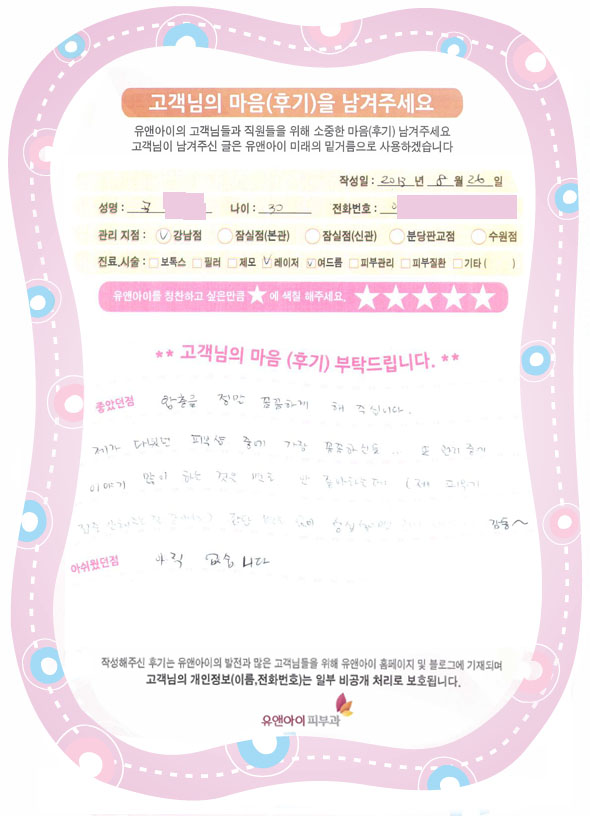 고객님의 마음(후기)을 남겨주세요
유앤아이의 고객님들과 직원들을 위해 소중한 마음(후기) 남겨주세요
고객님이 남겨주신 글은 유앤아이 미래의 밑거름으로 사용하겠습니다
작성일 : 2013 년 8 월 26 일
성명 : 곡 나이 : 30 전화번호 :
관리 지점 : 강남점 잠실점(본관) 잠실점(신관) 분당판교점 수원점
진료,시술 : 보톡스 필러 제모 레이저 여드름 피부관리 피부질환 기타 ( )
유앤아이를 칭찬하고 싶은만큼 ★ 에 색칠 해주세요. ★★★★★
** 고객님의 마음 (후기) 부탁드립니다. **
좋았던점 압출을 정말 꼼꼼하게 해 주십니다.
제가 다녔던 피부샵 중에 가장 꼼꼼하신듯 ... 또
이야기 많이 하는 것은 별로 안 좋아하는데 (제 피부가
감동~
아쉬웠던점 아직 없습니다
작성해주신 후기는 유앤아이의 발전과 많은 고객님들을 위해 유앤아이 홈페이지 및 블로그에 기재되며
고객님의 개인정보(이름,전화번호)는 일부 비공개 처리로 보호됩니다.
유앤아이피부과